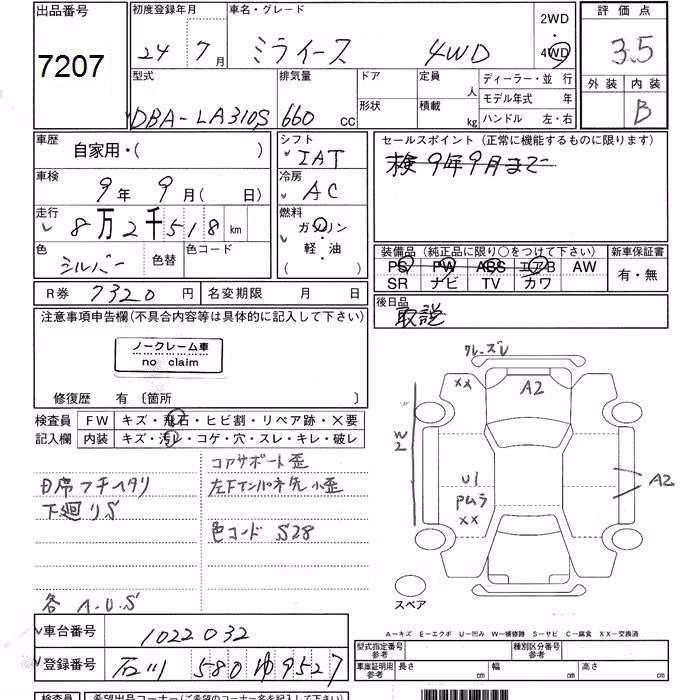 出品番号
7207
初度登録年月
24年 7月
車名・グレード
ミライース 4WD
2WD
・
4WD
評価点
3.5
外装 内装
B
型式
DBA-LA310S
排気量
660 cc
ドア
形状
定員 人
積載 kg
ディーラー・並 行
モデル年式 年
ハンドル 左・右
車歴
自家用・( )
シフト
IAT
セールスポイント (正常に機能するものに限ります)
検 9年9月まで
車検
9年 9月( 日)
冷房
AC
走行
8万2千518km
燃料
ガソリン
・
軽・油
( )
色
シルバー
色替
色コード
装備品 (純正品に限り○をつけて下さい)
PS PW ABS エアB AW
SR ナビ TV カワ
新車保証書
有・無
R券 7320円
名変期限 月 日
後日品
取説
注意事項申告欄(不具合内容等は具体的に記入して下さい)
ノークレーム車
no claim
修復歴 有 〔箇所 〕
検査員
記入欄
FW キズ・飛石・ヒビ割・リペア跡・×要
内装 キズ・汚レ・コゲ・穴・スレ・キレ・破レ
コアサポート歪
左下インパネ先小歪
下廻りS
色コード S28
各 A.U.S
××
A2
W2
U1
××
A2
スペア
車台番号
1022032
登録番号
石川 580 ゆ 9527
A-キズ E-エクボ U-凹み W-補修跡 S-サビ C-腐食 XX-交換済
型式指定番号
参考
種別区分番号
参考
車庫証明用
参考
長さ cm
幅 cm
高さ cm
検査員
希望出品コーナー(ご希望のコーナー名を記入して下さい)